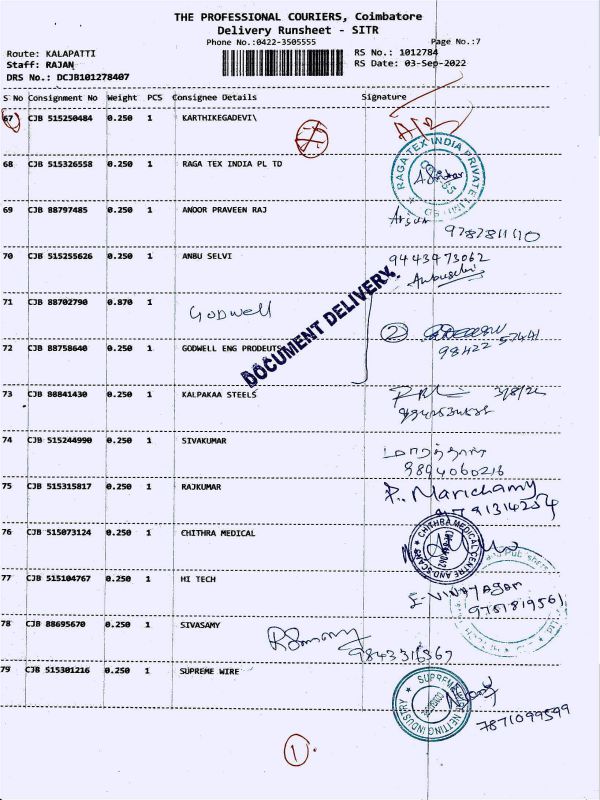 THE PROFESSIONAL COURIERS, Coimbatore
Delivery Runsheet - SITR
Phone No.:0422-3505555
Page No.:7
Route: KALAPATTI
RS No.: 1012784
Staff: RAJAN
RS Date: 03-Sep-2022
DRS No.: DCJB101278407
S No Consignment No Weight PCS Consignee Details Signature
67 CJB 515250484 0.250 1 KARTHIKEGADEVI\
68 CJB 515326558 0.250 1 RAGA TEX INDIA PL TD
RAGA TEX INDIA PRIVATE LIMITED
69 CJB 88797485 0.250 1 ANOOR PRAVEEN RAJ
9787811110
70 CJB 515255626 0.250 1 ANBU SELVI
9443473062
Anbuselvi
71 CJB 88702790 0.870 1 Godwell
DOCUMENT DELIVERY.
2
72 CJB 88758640 0.250 1 GODWELL ENG PRODEUTS
98422 57401
73 CJB 88841430 0.250 1 KALPAKAA STEELS
3/8/22
74 CJB 515244990 0.250 1 SIVAKUMAR
9894060216
75 CJB 515315817 0.250 1 RAJKUMAR
P. Marichamy
76 CJB 515073124 0.250 1 CHITHRA MEDICAL
CHITHRA MEDICAL CENTRE AND SCANS
77 CJB 515104767 0.250 1 HI TECH
E. Vinayagar
9787819561
78 CJB 88695670 0.250 1 SIVASAMY
79 CJB 515301216 0.250 1 SUPREME WIRE
SUPREME NETTING INDUSTRY
7871099599
1